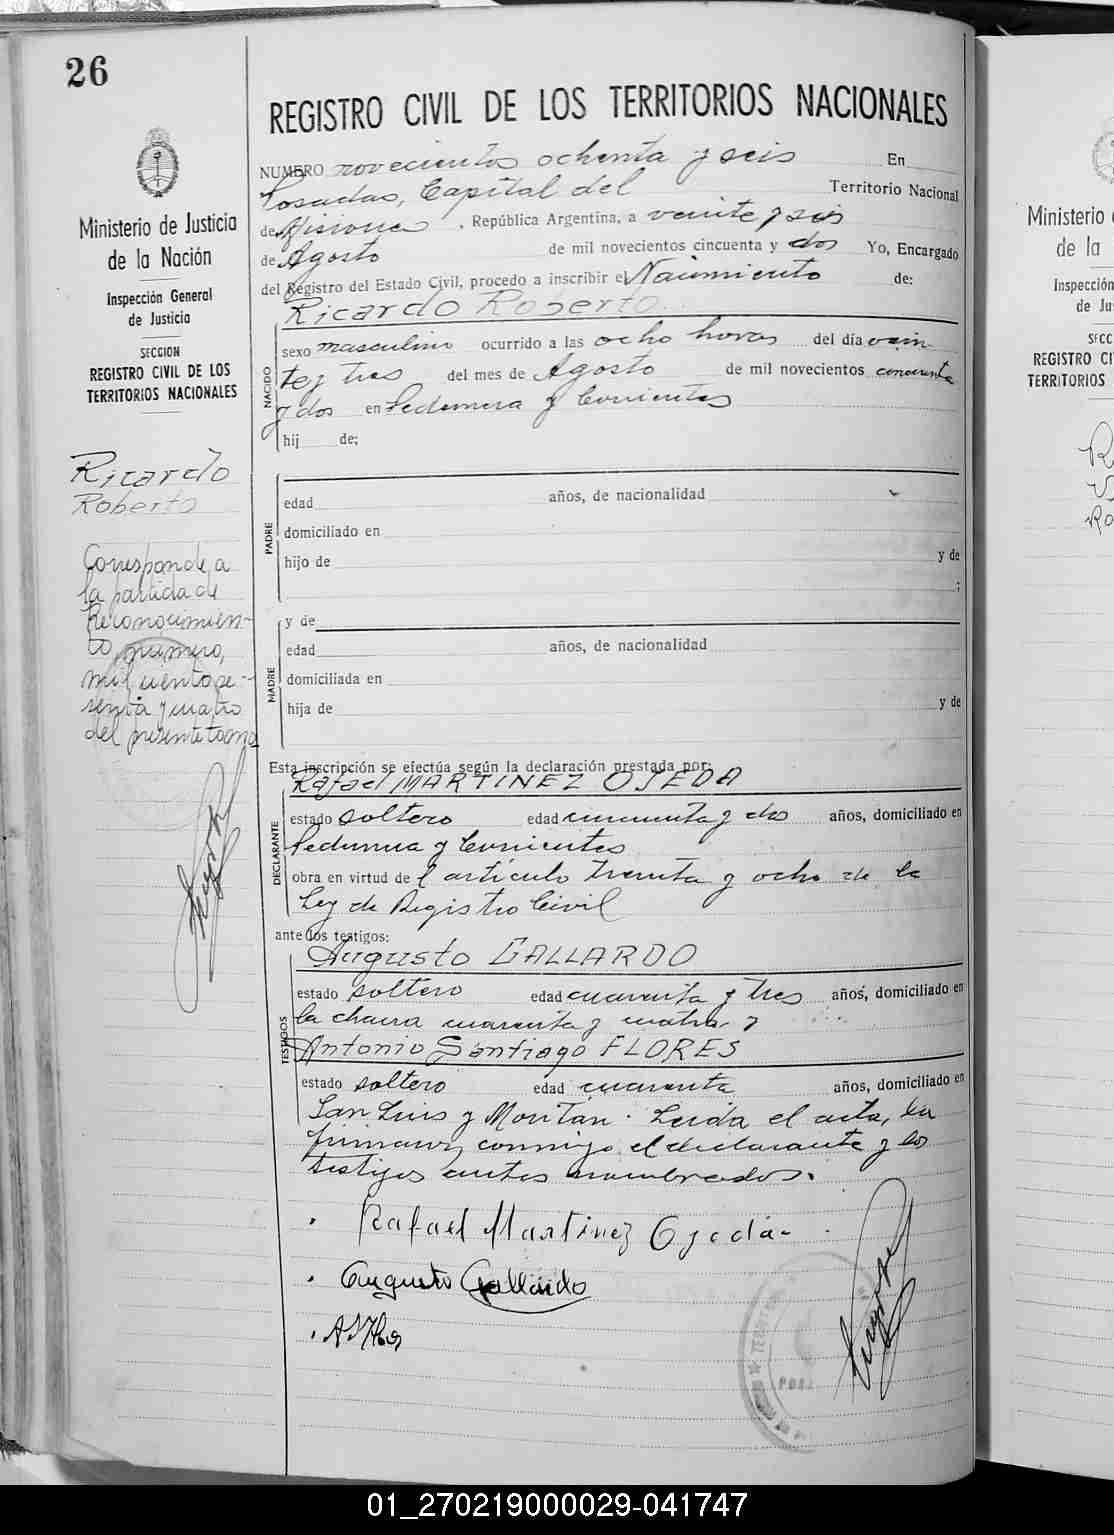 26
REGISTRO CIVIL DE LOS TERRITORIOS NACIONALES
Ministerio de Justicia
de la Nación
Inspección General
de Justicia
SECCION
REGISTRO CIVIL DE LOS
TERRITORIOS NACIONALES
Ricardo
Roberto
Corresponde a
la partida de
Reconocimien-
to número,
mil ciento se-
senta y cuatro
del presente tomo
NUMERO novecientos ochenta y seis En
Posadas, Capital del Territorio Nacional
de Misiones . República Argentina, a veinte y seis
de Agosto de mil novecientos cincuenta y dos Yo, Encargado
del Registro del Estado Civil, procedo a inscribir el Nacimiento de:
Ricardo Roberto
NACIDO
sexo masculino ocurrido a las ocho horas del día vein
te y tres del mes de Agosto de mil novecientos cincuenta
y dos en Ledesma y Corrientes
hij de:
PADRE
edad años, de nacionalidad
domiciliado en
hijo de y de
;
MADRE
y de
edad años, de nacionalidad
domiciliada en
hija de y de
Esta inscripción se efectúa según la declaración prestada por:
Rafael MARTINEZ OJEDA
DECLARANTE
estado soltero edad cincuenta y dos años, domiciliado en
y Corrientes
obra en virtud del artículo treinta y ocho de la
Ley de Registro Civil
ante los testigos:
Augusto GALLARDO
TESTIGOS
estado soltero edad cuarenta y tres años, domiciliado en
la chacra cuarenta y cuatro y
Antonio Santiago FLORES
estado soltero edad cuarenta años, domiciliado en
San Luis y . Leída el acta, la
firmaron conmigo el declarante y los
testigos antes nombrados.
Rafael Martinez Ojeda
Augusto Gallardo
Ministerio
de la
Inspección
de Ju
SECC
REGISTRO CI
TERRITORIOS
01_270219000029-041747